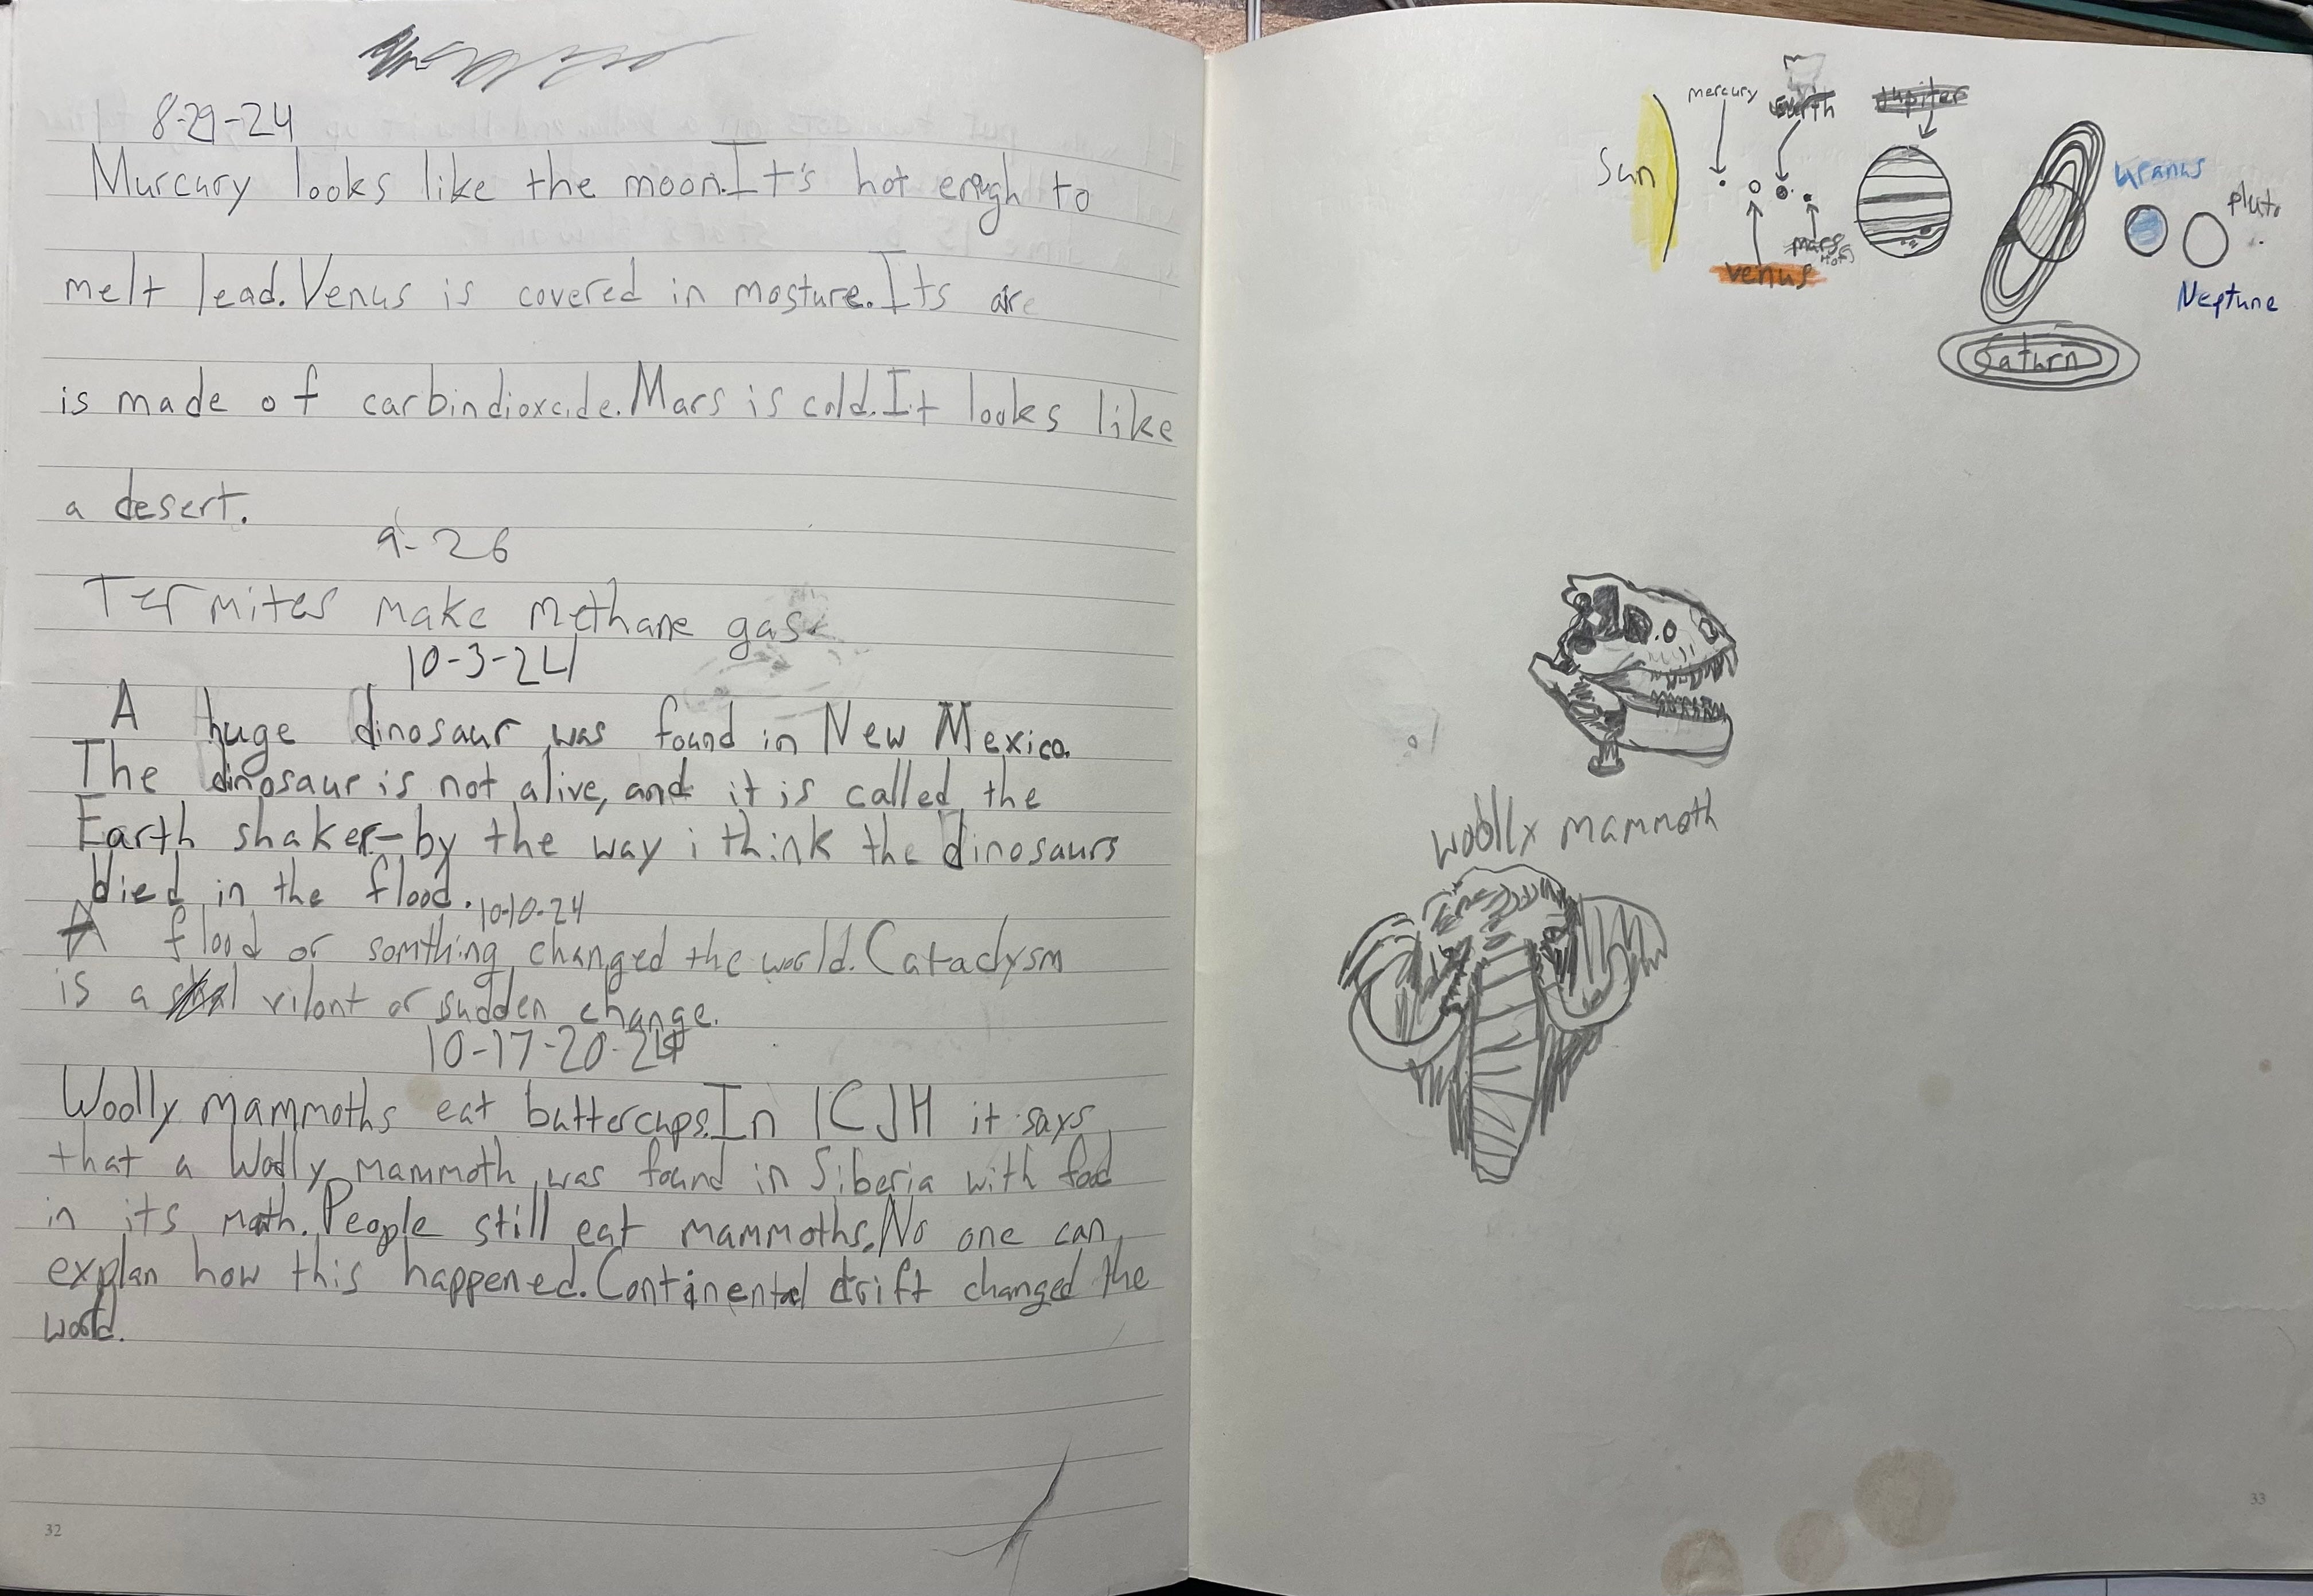 8-29-24
Murcury looks like the moon. It's hot enough to
melt lead. Venus is covered in mosture. Its are
is made of carbindioxcide. Mars is cold. It looks like
a desert.
9-26
Termites make methane gas
10-3-24
A huge dinosaur was found in New Mexico.
The dinosaur is not alive, and it is called the
Earth shaker-by the way i think the dinosaurs
died in the flood.
10-10-24
A flood or somthing changed the world. Cataclysm
is a vilont or sudden change.
10-17-20-24
Woolly mammoths eat buttercups. In ICJH it says
that a Woolly mammoth was found in Siberia with food
in its moth. People still eat mammoths. No one can
explan how this happened. Continental drift changed the
world.
32
Sun
mercury
earth
Jupiter
venus
mars
Saturn
Uranus
pluto
Neptune
woolly mammoth
33